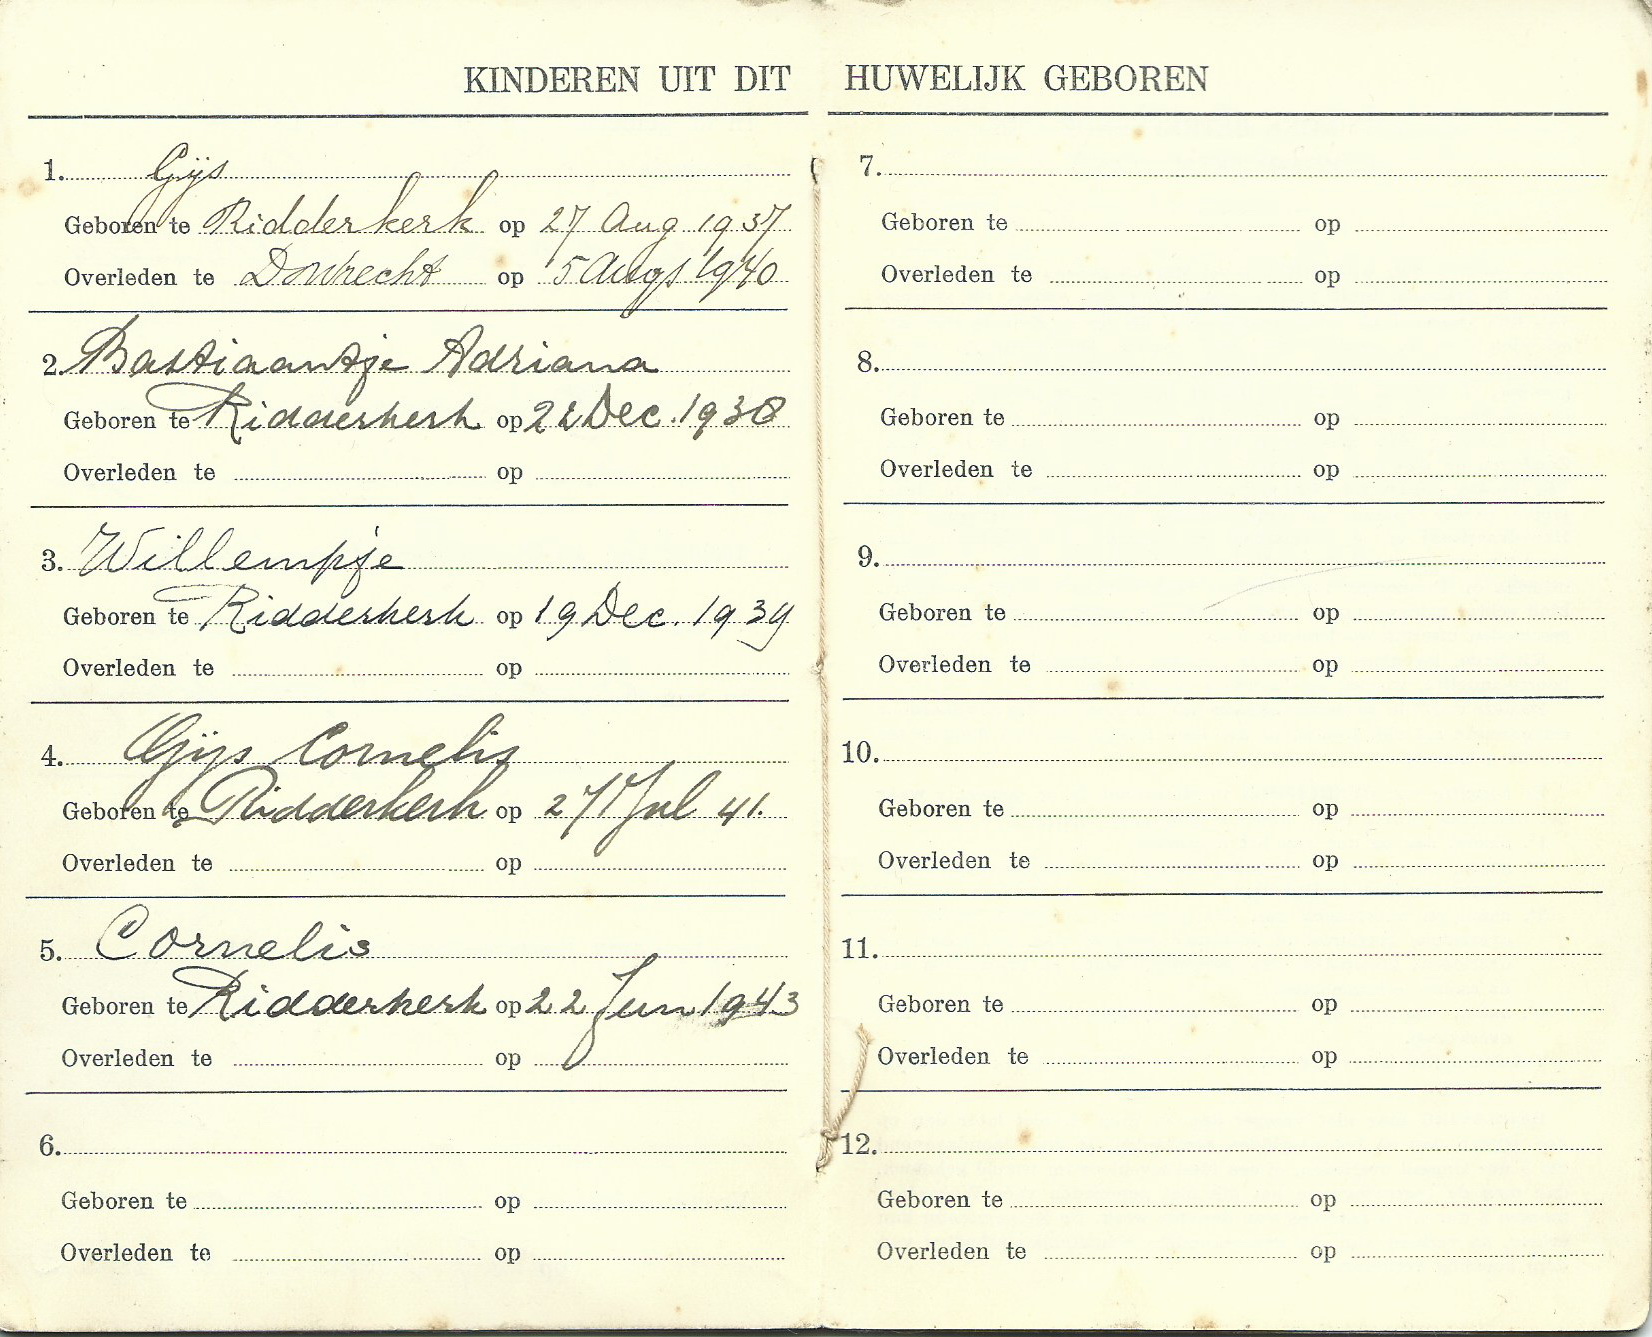 KINDEREN UIT DIT HUWELIJK GEBOREN
1. Gijs
Geboren te Ridderkerk op 27 Aug 1937
Overleden te Dordrecht op 5 Augs 1940
2. Bastiaantje Adriana
Geboren te Ridderkerk op Dec. 1938
Overleden te op
3. Willempje
Geboren te Ridderkerk op 19 Dec. 1939
Overleden te op
4. Gijs Cornelis
Geboren te Ridderkerk op 27 Jul 41.
Overleden te op
5. Cornelis
Geboren te Ridderkerk op 22 Jun 1943
Overleden te op
6.
Geboren te op
Overleden te op
7.
Geboren te op
Overleden te op
8.
Geboren te op
Overleden te op
9.
Geboren te op
Overleden te op
10.
Geboren te op
Overleden te op
11.
Geboren te op
Overleden te op
12.
Geboren te op
Overleden te op